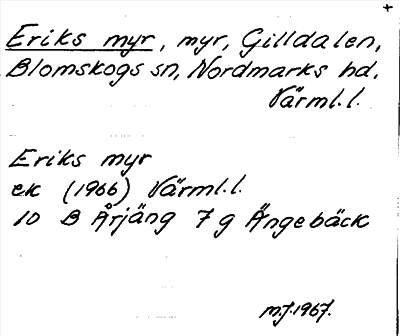 +
Eriks myr, myr, Gilldalen,
Blomskogs sn, Nordmarks hd.
Värml.l.
Eriks myr
ek (1966) Värml.l.
10 B Årjäng 7 g Ängebäck
m.J.1967.